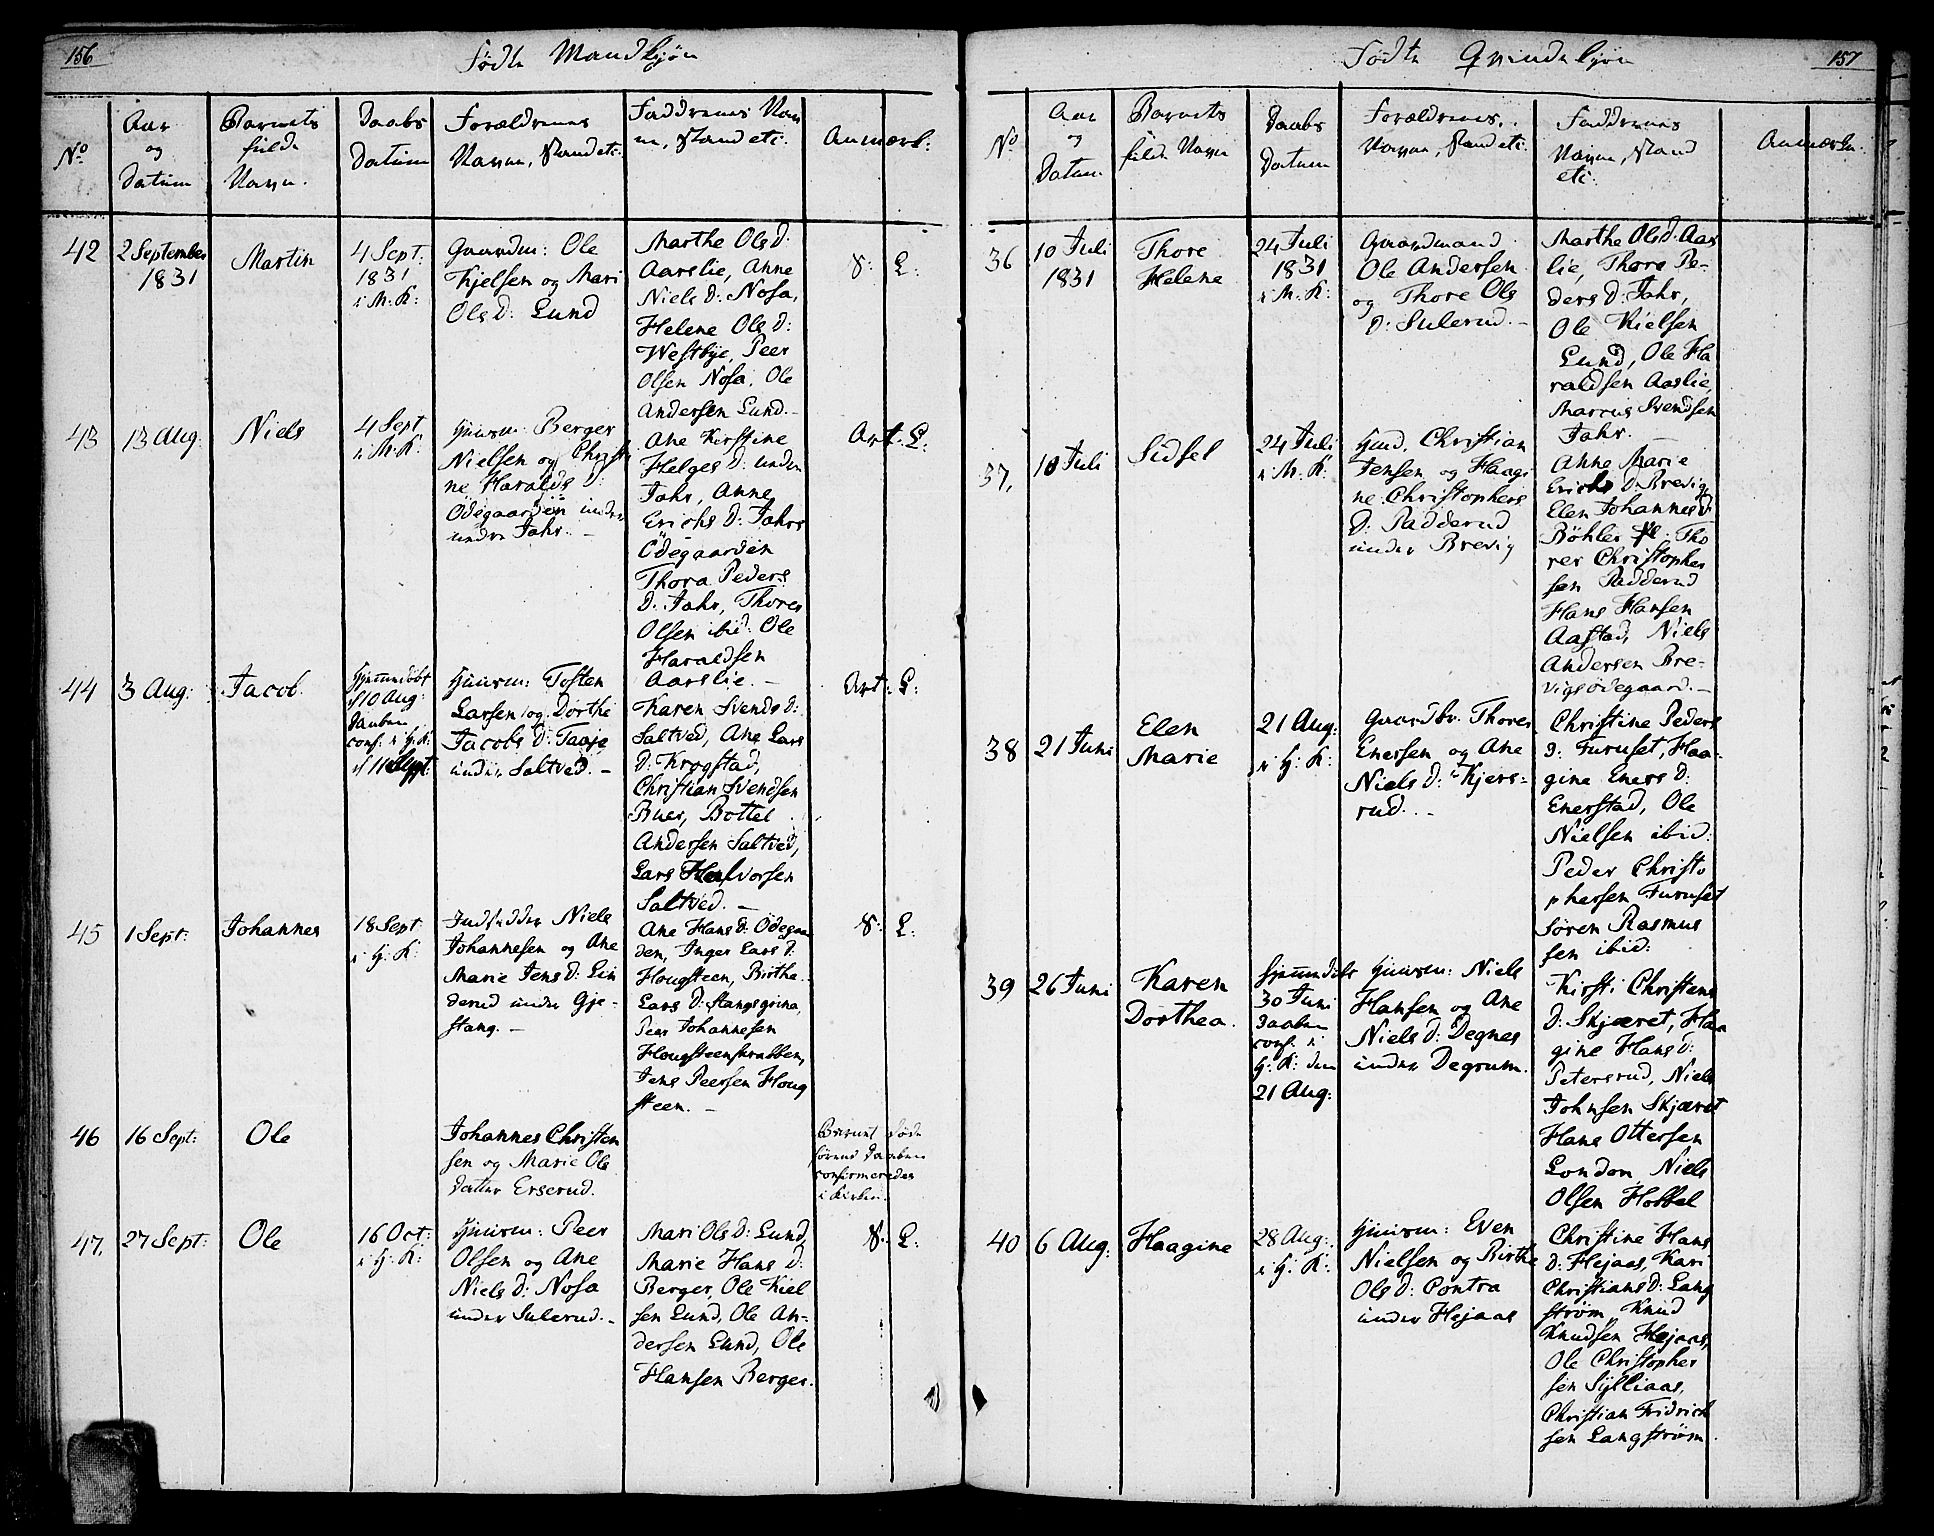 156
Fødte Mandkjøn
No
Aar
og
Datum
Barnets
fulde
Navn.
Daabs
Datum
Forældrenes
Navne, Stand etc:
Faddernes Nav
ne, Stand etc:
Anmærk:
42
2 September
1831
Martin
4 Sept:
1831
i M: K:
Gaardm: Ole
Kjelsen og Mari
Ols D: Lund
Marthe Ols D:
Aarslie, Anne
Niels D: Nosa,
Helene Ols D:
Westbye, Peer
Olsen Nosa, Ole
Andersen Lund. –
8: L:
43
13 Aug:
Niels
4 Sept
i M: K:
Huusm: Berger
Nielsen og Christi
ne Haralds D:
Ödegaarden under
under Jahr. –
Ane Kirstine
Helges D: under
Jahr, Anne
Erichs D: Jahrs
Ödegaarden
Thora Peders
D: Jahr, Thores
Olsen ibid: Ole
Haraldsen
Aarslie. –
Art: L:
44
3 Aug:
Jacob
Hjemmedöbt
d 10 Aug:
Daaben
conf: i H: K:
d 11 Sept:
Huusm: Tosten
Larsen og Dorthe
Jacobs D: Taaje
under Saltved. –
Karen Svends D:
Saltved, Ane Lars
D: Krogstad,
Christian Svendsen
Buer, Bottel
Andersen Saltved,
Lars Halvorsen
Saltved. –
Art: L:
45
1 Sept:
Johannes
18 Sept:
i H: K:
Indsidder Niels
Johannesen og Ane
Marie Jens D: Lin
derud under Gje-
stang. –
Ane Hans D: Ödegaa
den, Inger Lars D:
Hougsteen, Birthe
Lars D: Stangsgrina,
Peer Johannesen
Hougsteenskrabben,
Jens Peersen Houg
steen. –
8: L:
46
16 Sept:
Ole
Johannes Christen
sen og Marie Ols
datter Erserud.
Barnet døde
förend Daaben
confirmeredes
i Kirken.
47.
27 Sept:
Ole
16 Oct:
i H: K:
Huusm: Peer
Olsen og Ane
Niels D: Nosa
under Sulerud. –
Mari Ols D: Lund,
Marie Hans D:
Berger, Ole Kiel
sen Lund, Ole An-
dersen Lund, Ole
Hansen Berger.
8. L:
157
Fødte Qvindekjøn
No
Aar
og
Datum.
Barnets
fulde Navn
Daabs
Datum
Forældrenes
Navne, Stand etc:
Faddernes
Navne, Stand
etc:
Anmærkn.
36
10 Juli
1831
Thore
Helene
24 Juli
1831
i M: K:
Gaardmand
Ole Andersen
og Thore Ols
D: Sulerud. –
Marthe Ols D: Aas
lie, Thore Pe-
ders D: Jahr,
Ole Kielsen
Lund, Ole Ha
raldsen Aaslie,
Marcus Svendsen
Jahr. –
37,
10 Juli
Sidsel
24 Juli
i M: K:
Huusm. Christian
Jensen og Haagi
ne Christophers
D: Padderud
under Brevig
Anne Marie
Erichs D: Brevig,
Elen Johannes D
Böhler, Tho
rer Christopher
sen Padderud
Hans Hansen
Aastad, Niels
Andersen Bre-
vigsödegaard. –
38
21 Juni
Elen
Marie
21 Aug:
i H: K:
Gaardbr. Thores
Enersen og Ane
Niels D: Kjers-
rud. –
Christine Peders
D: Furuset, Haa-
gine Eners D:
Enerstad, Ole
Nielsen ibid:
Peder Christo
phersen Furuset
Sören Rasmus
sen ibid:
39
26 Juni
Karen
Dorthea.
Hjemmedöbt
30 Juni
Daaben
conf: i
H: K: den
21 Aug:
Huusm: Niels
Hansen og Ane
Niels D: Degnes
under Degrum.
Kirsti Christens
D: Skjæret, Haa
gine Hans D:
Petersrud, Niels
Johnsen Skjæret
Hans Ottersen
London, Niels
Olsen Hobbel
40
6 Aug:
Haagine
28 Aug:
i H: K:
Huusm: Even
Nielsen og Birthe
Ols D: Pontra
under Hejaas
Christine Hans
D: Hejaas, Kari
Christians D: Lang
ström, Knud
Knudsen Hejaas,
Ole Christopher
sen Sylliaas,
Christian Fridrich
sen Langström.